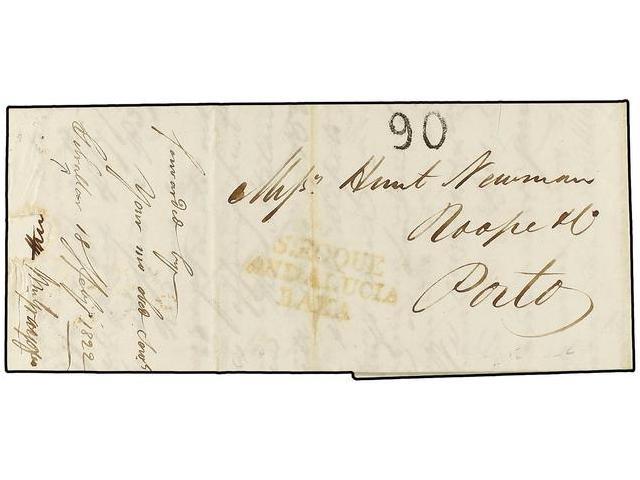 90
Messrs Hunt Newman
Roope & Co
Porto
S.ROQUE
ANDALUCIA
BAXA
forwarded by
Your mo obed Servts
Gibraltar 18 1822